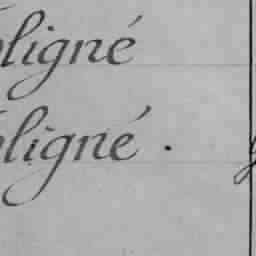 oligné
oligné .